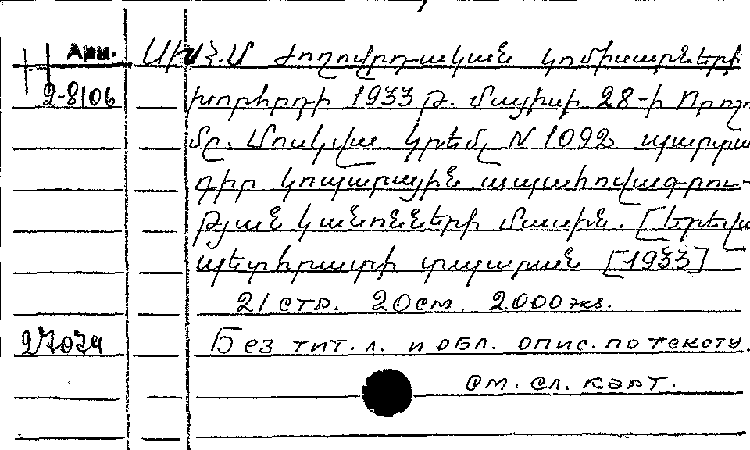 Арм. ՍԽՍՀՄ Ժողովրդական կոմիսարների
2-8106 խորհրդի 1933 Թ. մայիսի 28-ի Որոշ
մը. Մոսկվա Կրեմլ N 1092 պարտա
դիր կոպարային ապահովագրու-
թյան կանոնների մասին. [Երևան
պետհրատի տպարան [1933]
21 стр. 20 см. 2.000 экз.
27079 Без тит. л. и обл. опис. по тексту.
см. сл. карт.